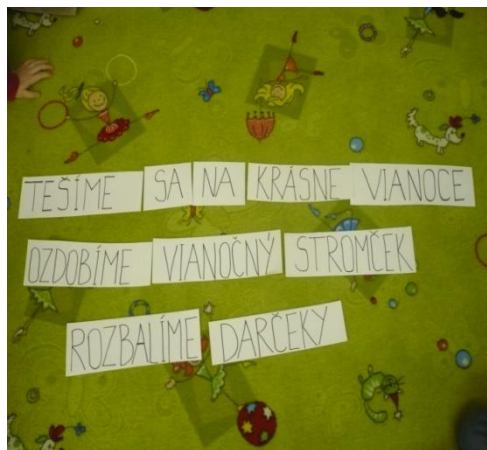 TEŠÍME SA NA KRÁSNE VIANOCE
OZDOBÍME VIANOČNÝ STROMČEK
ROZBALÍME DARČEKY